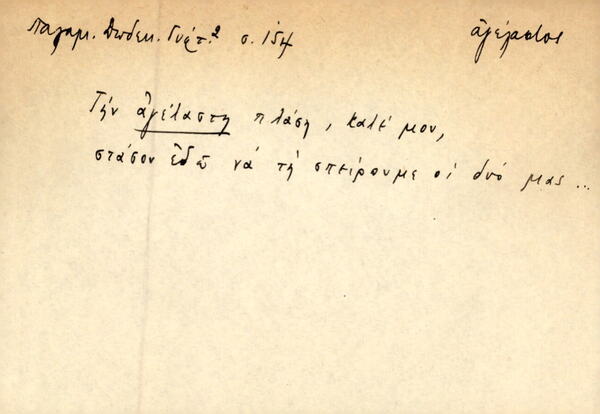 Παλαμ. Δωδεκ. Γύφτ.² σ. 154
ἀγέλαστος
Τήν ἀγέλαστη πλάση, καλέ μου,
στάσου ἐδῶ νά τή σπείρουμε οἱ δυό μας ...